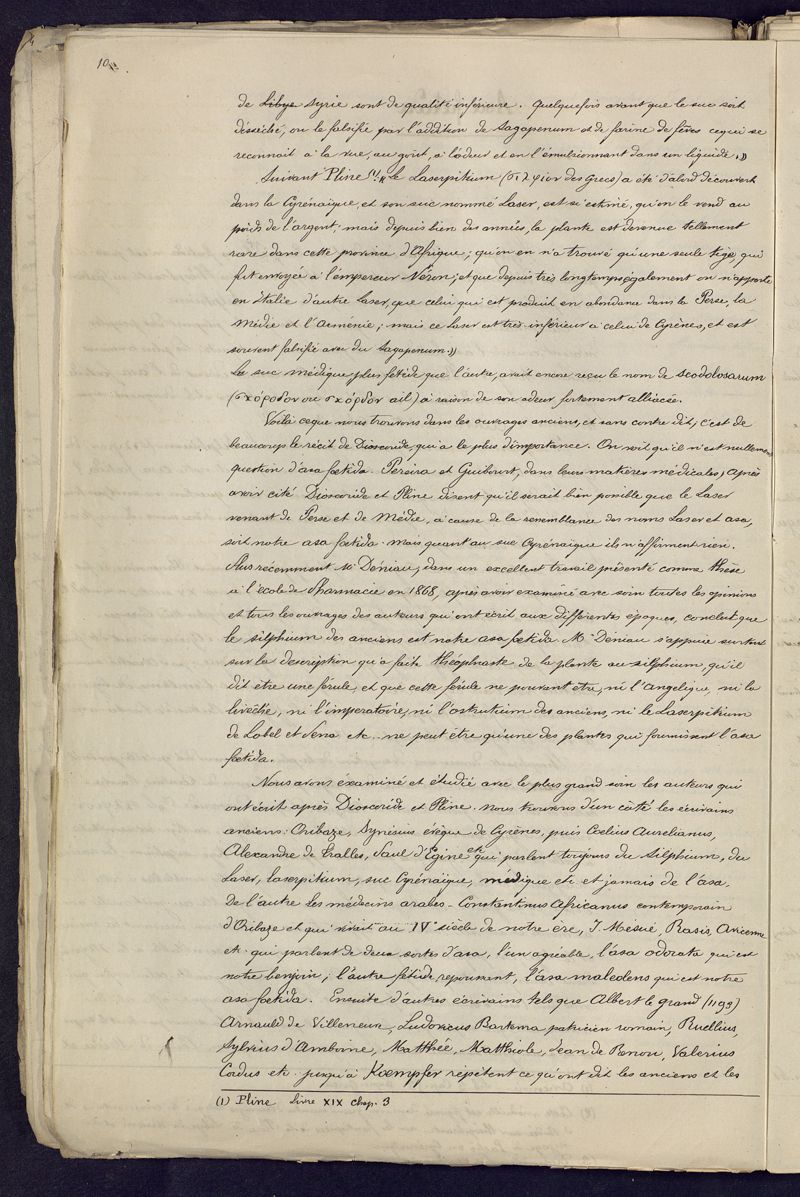 10
de Libye Syrie sont de qualité inférieure. Quelquefois avant que le suc soit
désséché, on le falsifie par l'addition de Sagapenum et de farine de fèves ce qui se
reconnait à la vue, au goût, à l'odeur et en l'émulsionnant dans un liquide.»
Suivant Pline (1) « le Laserpitium (σιλφιον des Grecs) a été d'abord découvert
dans la Cyrénaique, et son suc nommé Laser, est si estimé, qu'on le vend au
poids de l'argent; mais depuis bien des années, la plante est devenue tellement
rare dans cette province d'Afrique; qu'on en n'a trouvé qu'une seule tige, qui
fut envoyée à l'empereur Néron; et que depuis très longtemps également on n'apporte
en Italie d'autre Laser, que celui qui est produit en abondance dans la Perse, la
Médie et l'Arménie; mais ce Laser est très inférieur à celui de Cyrènes, et est
souvent falsifié avec du Sagapenum.»
Le suc médique plus fétide que l'autre, avait encore reçu le nom de Scodolosarum
(σκόροδον ou σκόρδον ail) à raison de son odeur fortement alliacée.
Voilà ce que nous trouvons dans les ouvrages anciens, et sans contre dit, c'est de
beaucoup le récit de Dioscoride, qui a le plus d'importance. On voit qu'il n'est nullement
question d'asa fœtida. Pereira et Guibourt, dans leurs matières médicales, après
avoir cité Dioscoride et Pline disent qu'il serait bien possible que le Laser
venant de Perse et de Médie, à cause de la ressemblance des noms Laser et asa,
soit notre asa fœtida. Mais quant au suc Cyrénaique ils n'affirment rien.
Plus recemment Mr Déniau, dans un excellent travail présenté comme thèse
à l'école de Pharmacie en 1868, après avoir examiné avec soin toutes les opinions
et tous les ouvrages des auteurs qui ont écrit aux différentes époques, conclut que
le silphium des anciens est notre asa fœtida. Mr Déniau s'appuie surtout
sur la description qu'a faite Théophraste de la plante au silphium, qu'il
dit être une férule, et que cette férule ne pouvant etre, ni l'Angelique, ni la
livèche, ni l'imperatoire, ni l'ostrutium des anciens, ni le Laserpitium
de Lobel et Pena etc. ne peut etre qu'une des plantes qui fournissent l'asa
fœtida.
Nous avons éxaminé et étudié avec le plus grand soin les auteurs qui
ont écrit après Dioscoride et Pline. Nous trouvons d'un côté les écrivains
anciens: Oribaze, Synésius évèque de Cyrènes, puis Cœlius Aurelianus,
Alexandre de Tralles, Paul d'Egine etc qui parlent toujours du Silphium, du
Laser, laserpitium, suc Cyrénaique, médique etc et jamais de l'asa.
De l'autre les médecins arabes - Constantinus Africanus contemporain
d'Oribaze et qui vivait au IVe siècle de notre ère, J. Mésué, Rasis, Avicenne
etc. qui parlent de deux sortes d'asa, l'un agréable, l'asa odorata qui est
notre benjoin; l'autre fétide, repoussant, l'asa maleolens qui est notre
asa fœtida. Ensuite d'autres écrivains tels que Albert le grand (1193)
Arnauld de Villeneuve, Ludovicus Bartema patricien romain, Ruellius,
Sylvius d'Amboine, Matthée, Matthiole, Jean de Renou, Valerius
Cordus etc. jusqu'à Kœmpfer répètent ce qu'ont dit les anciens et les
(1) Pline Livre XIX chap. 3